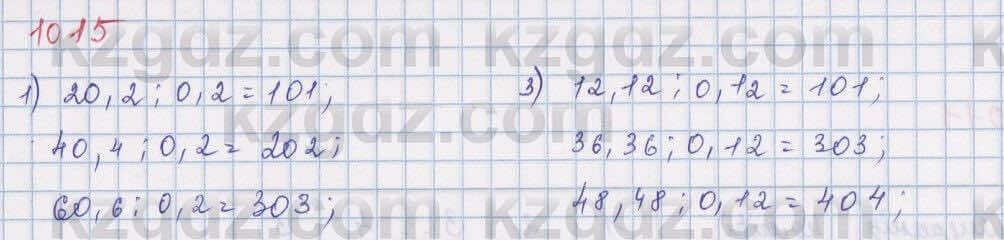 kzgdz.com kzgdz.com
1015
1) 20,2 : 0,2 = 101;
40,4 : 0,2 = 202;
60,6 : 0,2 = 303;
kzgdz.com
3) 12,12 : 0,12 = 101;
36,36 : 0,12 = 303;
48,48 : 0,12 = 404;
kzgdz.com kzgdz.com